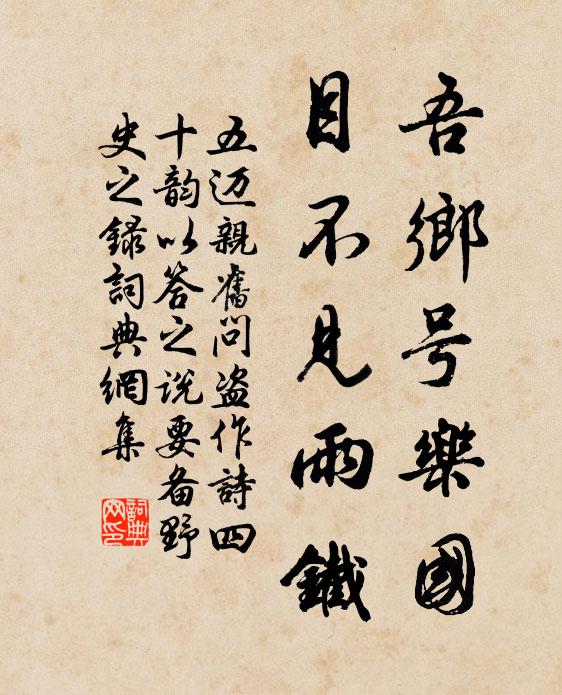 吾鄉号樂國
目不見雨鐵
五迈親舊問盗作詩四
十韵以答之説要备野
史之録詞典網集
詞典网印